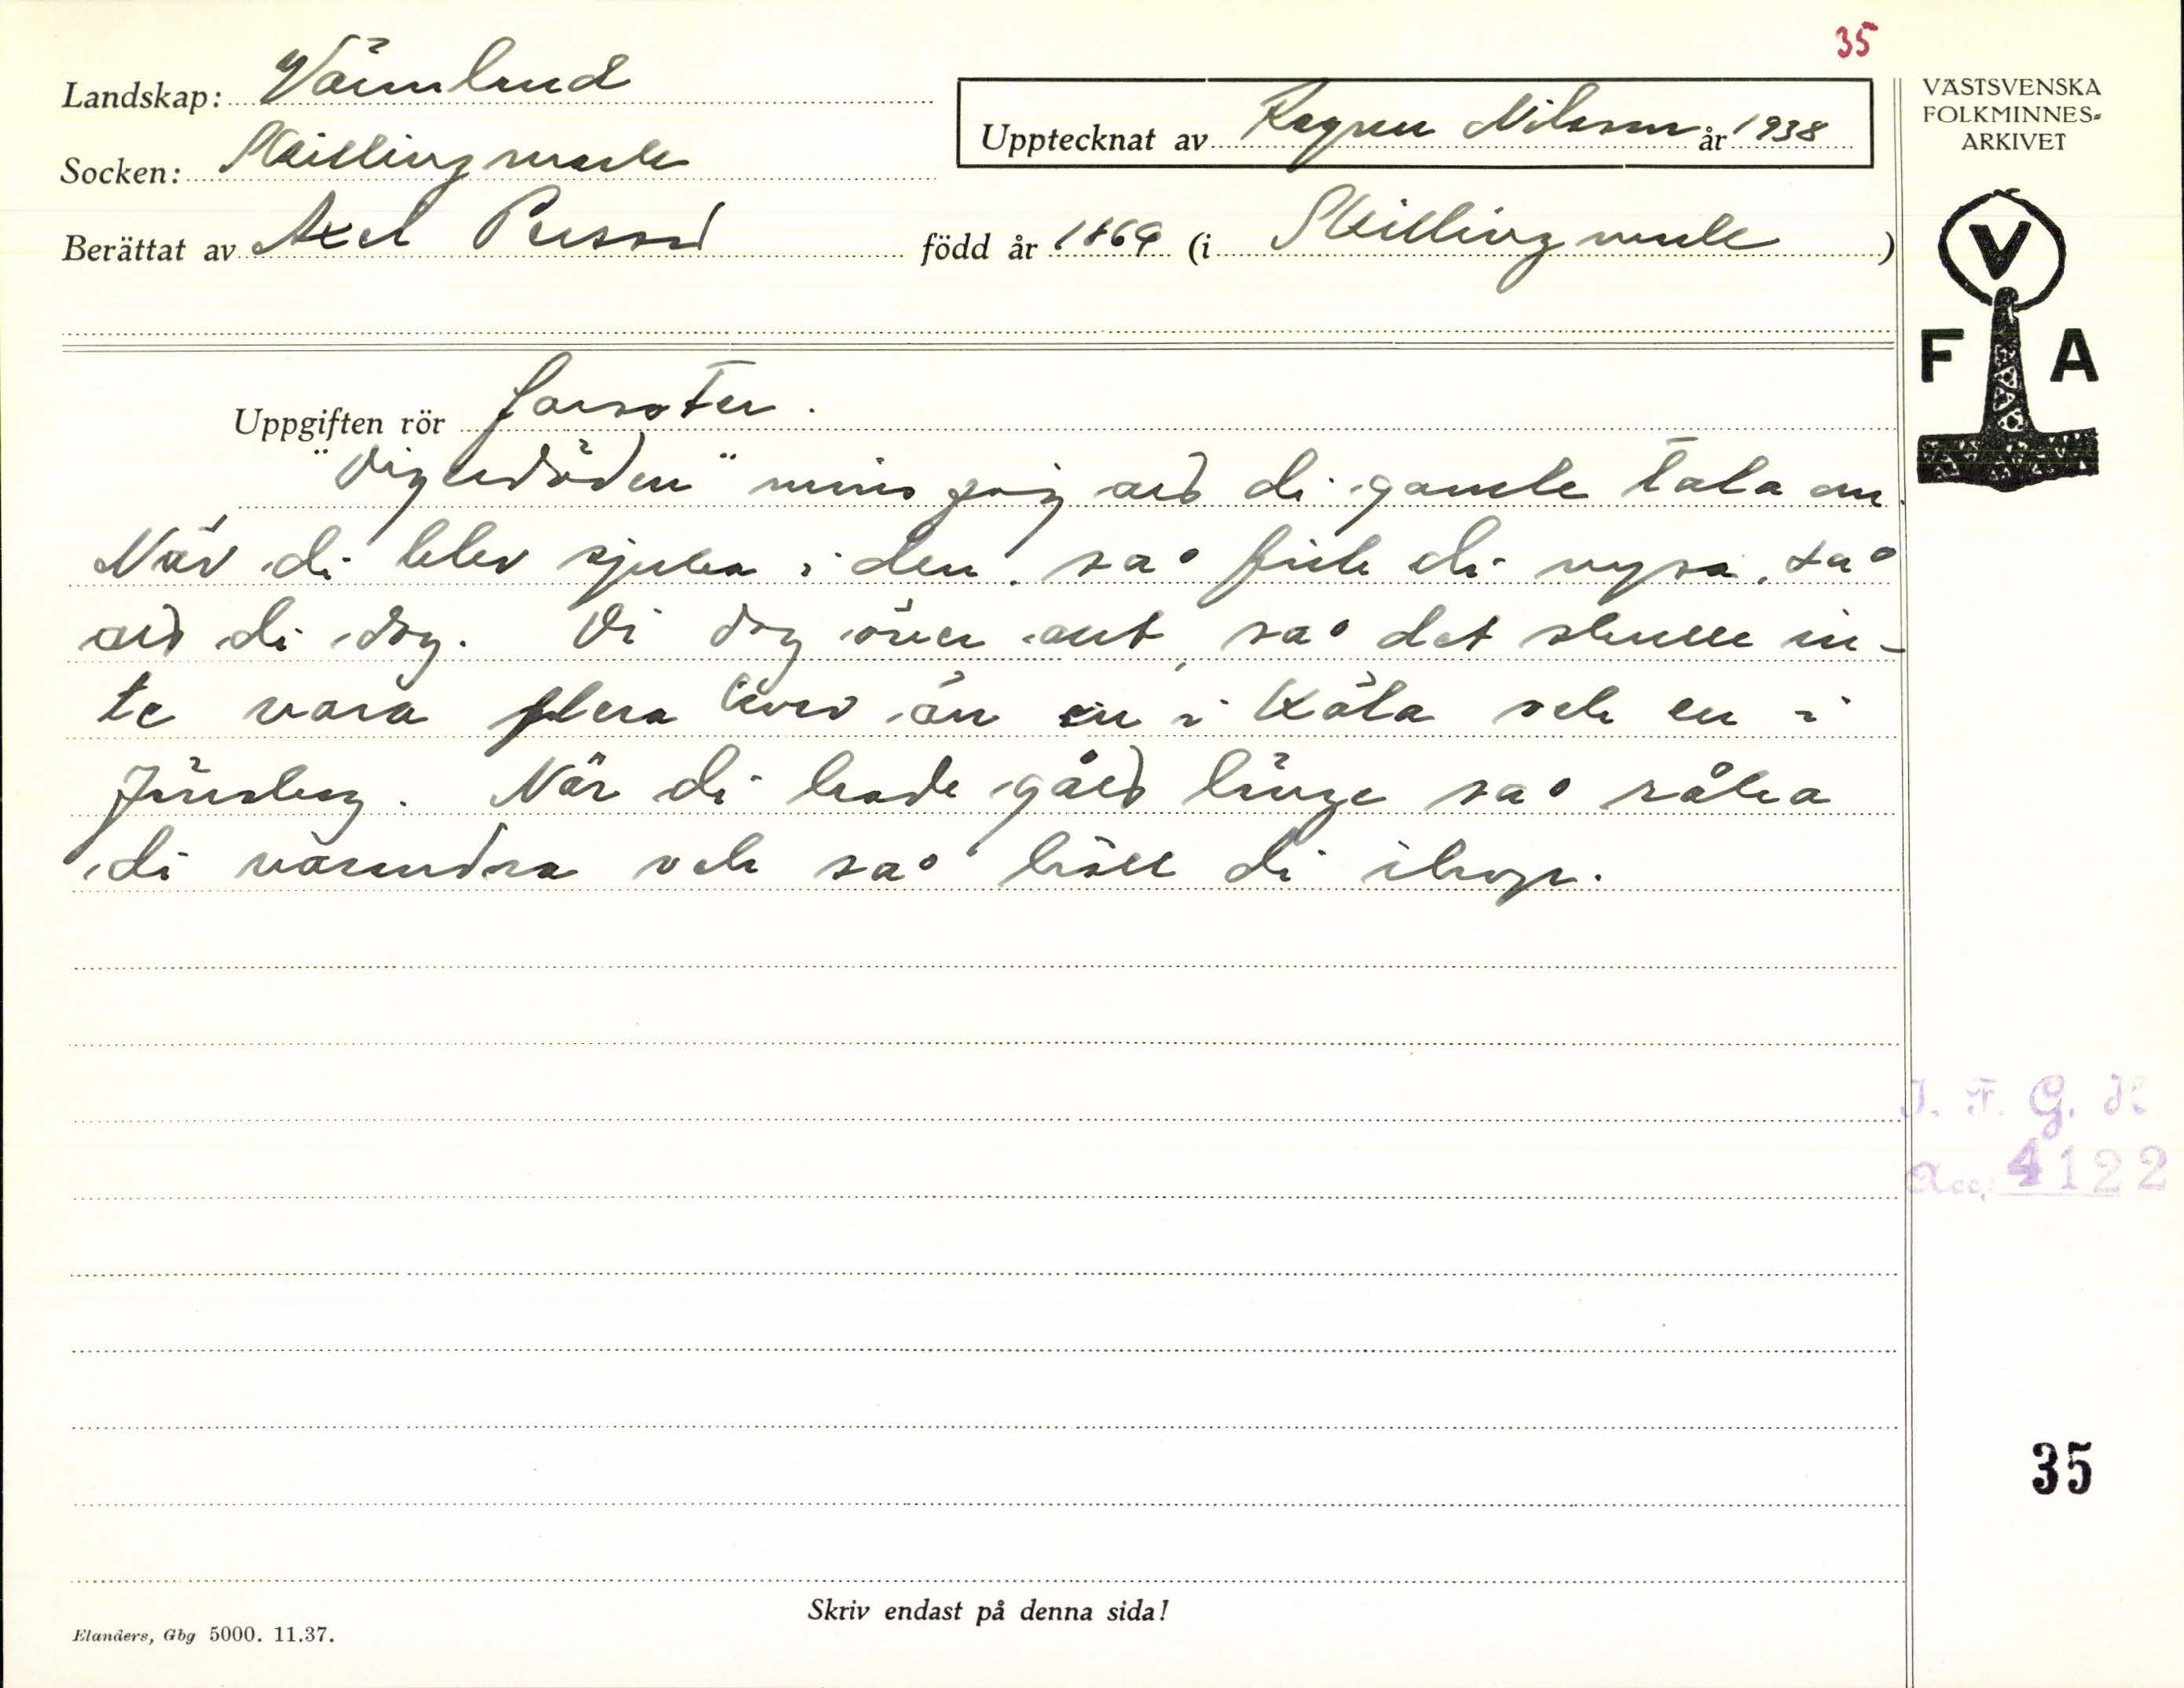 35
Landskap: Värmland
Upptecknat av Ragnar Nilsson år 1938
Socken: Skillingmark
Berättat av Axel Persson född år 1869 (i Skillingmark)
VÄSTSVENSKA
FOLKMINNES=
ARKIVET
V
F A
Uppgiften rör farsoter.
"Digerdöden" minns jag att di gamle tala om.
När di blev sjuka i den, så fick di nysa, så
att di dog. Di dog över allt, så det skulle in-
te vara flera kvar än en i Köla och en i
Järnskog. När di hade gått länge så råka
di varandra och så höll di ihop.
I. F. G. H.
Acc. 4122
35
Skriv endast på denna sida!
Elanders, Gbg 5000. 11.37.